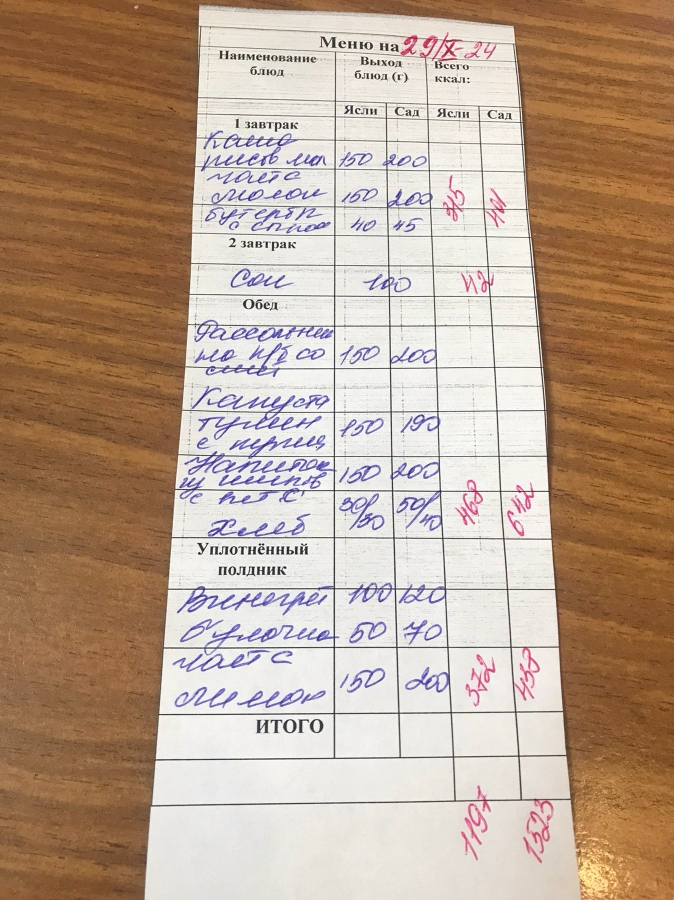 Меню на 29/X-24
Наименование блюд Выход блюд (г) Всего ккал:
Ясли Сад Ясли Сад
1 завтрак
Каша
рисов мол 150 200
чай с
молок 150 200 315 401
бутербр
с сыром 40 45
2 завтрак
Сок 100 42
Обед
Рассольник
на к/б со 150 200
смет
Капуста
тушен 150 190
с куриц
Напиток 150 200
из шипов
с вит С 30/30 50/40 468 642
Хлеб
Уплотнённый
полдник
Винегрет 100 120
булочка 50 70
чай с
лимон 150 200 372 438
ИТОГО
1197 1523